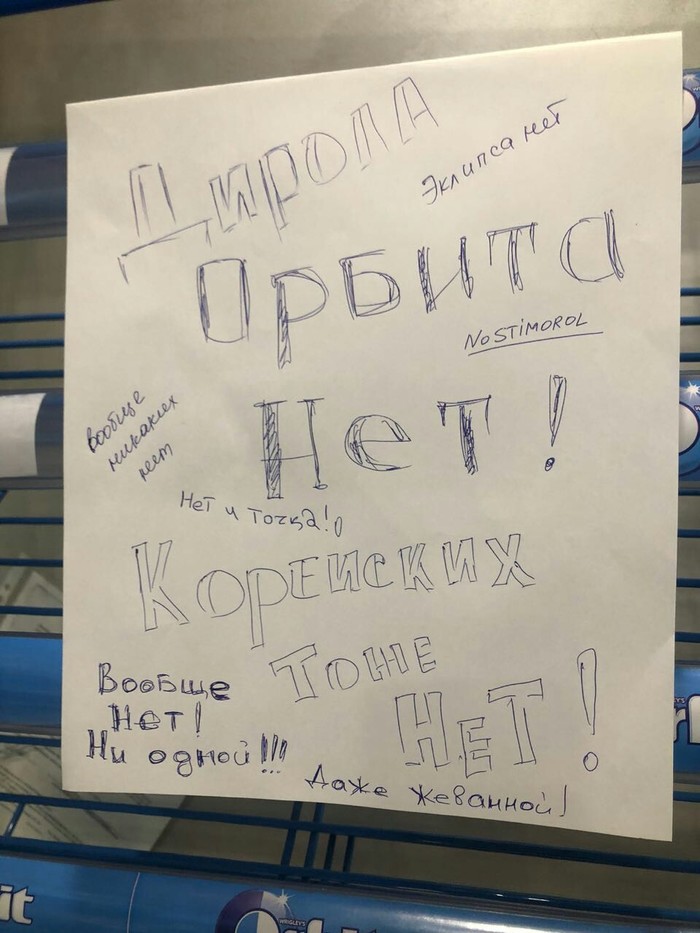 Дирола
Эклипса нет
Орбита
NO STIMOROL
Нет!
вообще
никаких
нет
Нет и точка!
Корейских
Тоже
Нет!
Вообще
Нет!
Ни одной!!!
Даже жеванной!
it
WRIGLEY'S